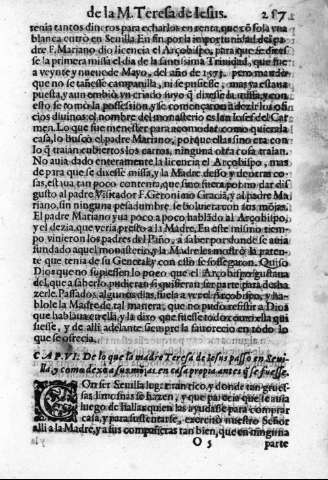 de la M. Teresa de Iesus. 217
tenia tantos dineros para echarlos en renta, que cõ sola vna
blanca entrò en Seuilla. En fin por la importunidad del pa
dre F. Mariano dio licencia el Arçobispo, para que se dixes
se la primera missa el dia de la santissima Trinidad, que fue
a veynte y nueue de Mayo, del año de 1575. pero mandò
que no se tañesse campanilla, ni se pusiesse; mas ya estaua
puesta, y assi embiò vn criado suyo que dixesse la missa, y con
esto se tomò la possession, y se començaron a dezir los ofi
cios diuinos, el nombre del monasterio es san Iosef del Car
men. Lo que fue menester para acomodar como quiera la
casa, lo buscò el padre Mariano, porque ellas sino era con lo
q̃ traian cubiertos los carros, ninguna otra cosa traian.
No auia dado enteramente la licencia el Arçobispo, mas
de para que se dixesse missa, y la Madre desso y de otras co
sas, estaua tan poco contenta, que sino fuera por no dar dis
gusto al padre Visitador F. Geronimo Gracia, y al padre Ma
riano, sin ninguna pesadumbre, se boluiera con sus mõjas.
El padre Mariano yua poco a poco hablãdo al Arçobispo,
y el dezia, que veria presto a la Madre. En este mismo tiem
po vinieron los padres del Paño, a saber por donde se auia
fundado aquel monasterio, y la Madre les mostrò la paten
te que tenia de su General, y con esto se sossegaron. Quiso
Dios que no supiessen lo poco que el Arçobispo gustaua
del, que a saberlo, pudieran si quisieran ser parte para desha
zerle. Passados algunos dias, fue la a ver el Arçobispo, y ha-
blole la Madre de tal manera, que no pudo resistir a Dios
que hablaua en ella, y la dixo que fuesse todo como ella qui
siesse, y de alli adelante siempre la fauorecio en todo lo
que se ofrecia.
CAP. VI. De lo que la madre Teresa de Iesus passò en Seui-
lla, y como dexò a sus mõjas en casa propia antes q̃ se fuesse.
CON ser Seuilla lugar tan rico, y donde tan grues-
sas limosnas se hazen, y que parecia que se auia
luego de hallar quien las ayudasse para comprar
casa, y para sustentarse, exercitò nuestro Señor
alli a la Madre, y a sus compañeras tan bien, que en ninguna
O 5 parte